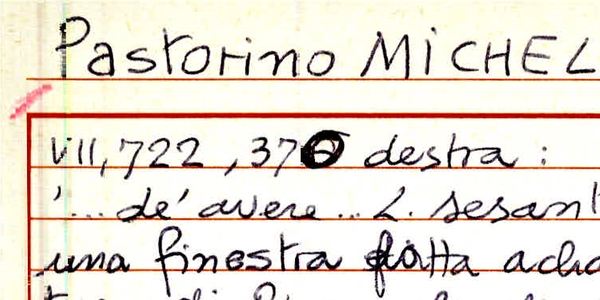 Pastorino MICHEL
VII, 722, 376 destra :
'... de' avere ... L. sesant
una finestra fatta a